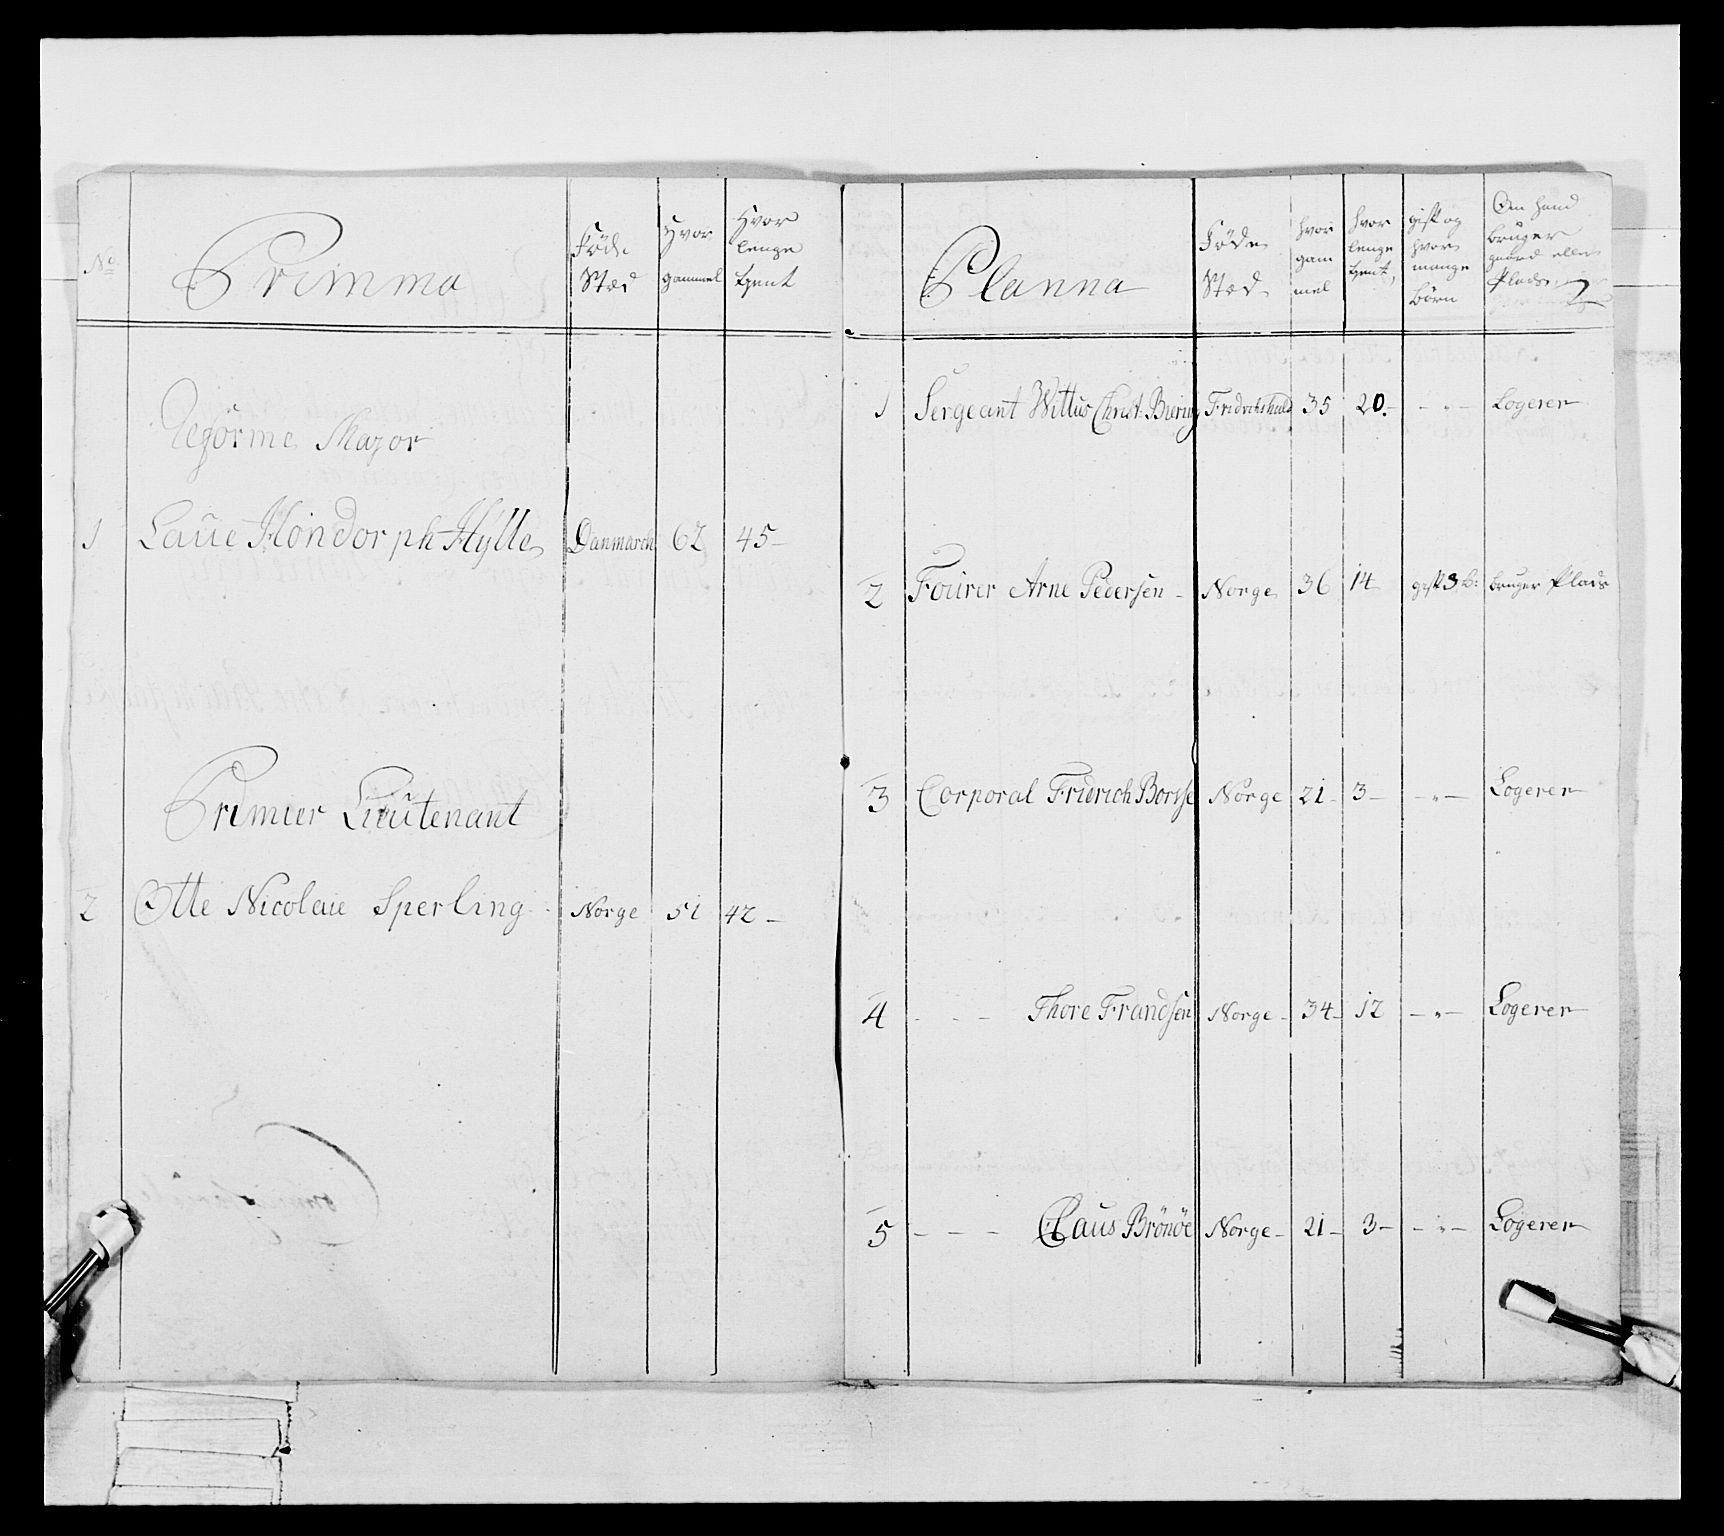 No
Primma
Föde
Stæd
Hvor
gammel
Hvor
lenge
tient
Major
1 Laue Hondorph Hylle Danmarch 62 45
Premier Lieutenant
2 Otte Nicolaie Sperling Norge 51 42
Planna
Föde
Stæd
hvor
gam
mel
hvor
lenge
tient
gift og
hvor
mange
börn
Om hand
bruger
gaard eller
Plads
2
1 Sergeant Wittus Christ: Biering Fridrichshald 35 20 Logerer
2 Fourer Arne Pedersen Norge 36 14 gift 3 b: bruger Plads
3 Corporal Fridrich Borsse Norge 21 3 Logerer
4 - - - Thore Frandsen Norge 34 12 Logerer
5 - - - Claus Brönöe Norge 21 3 Logerer